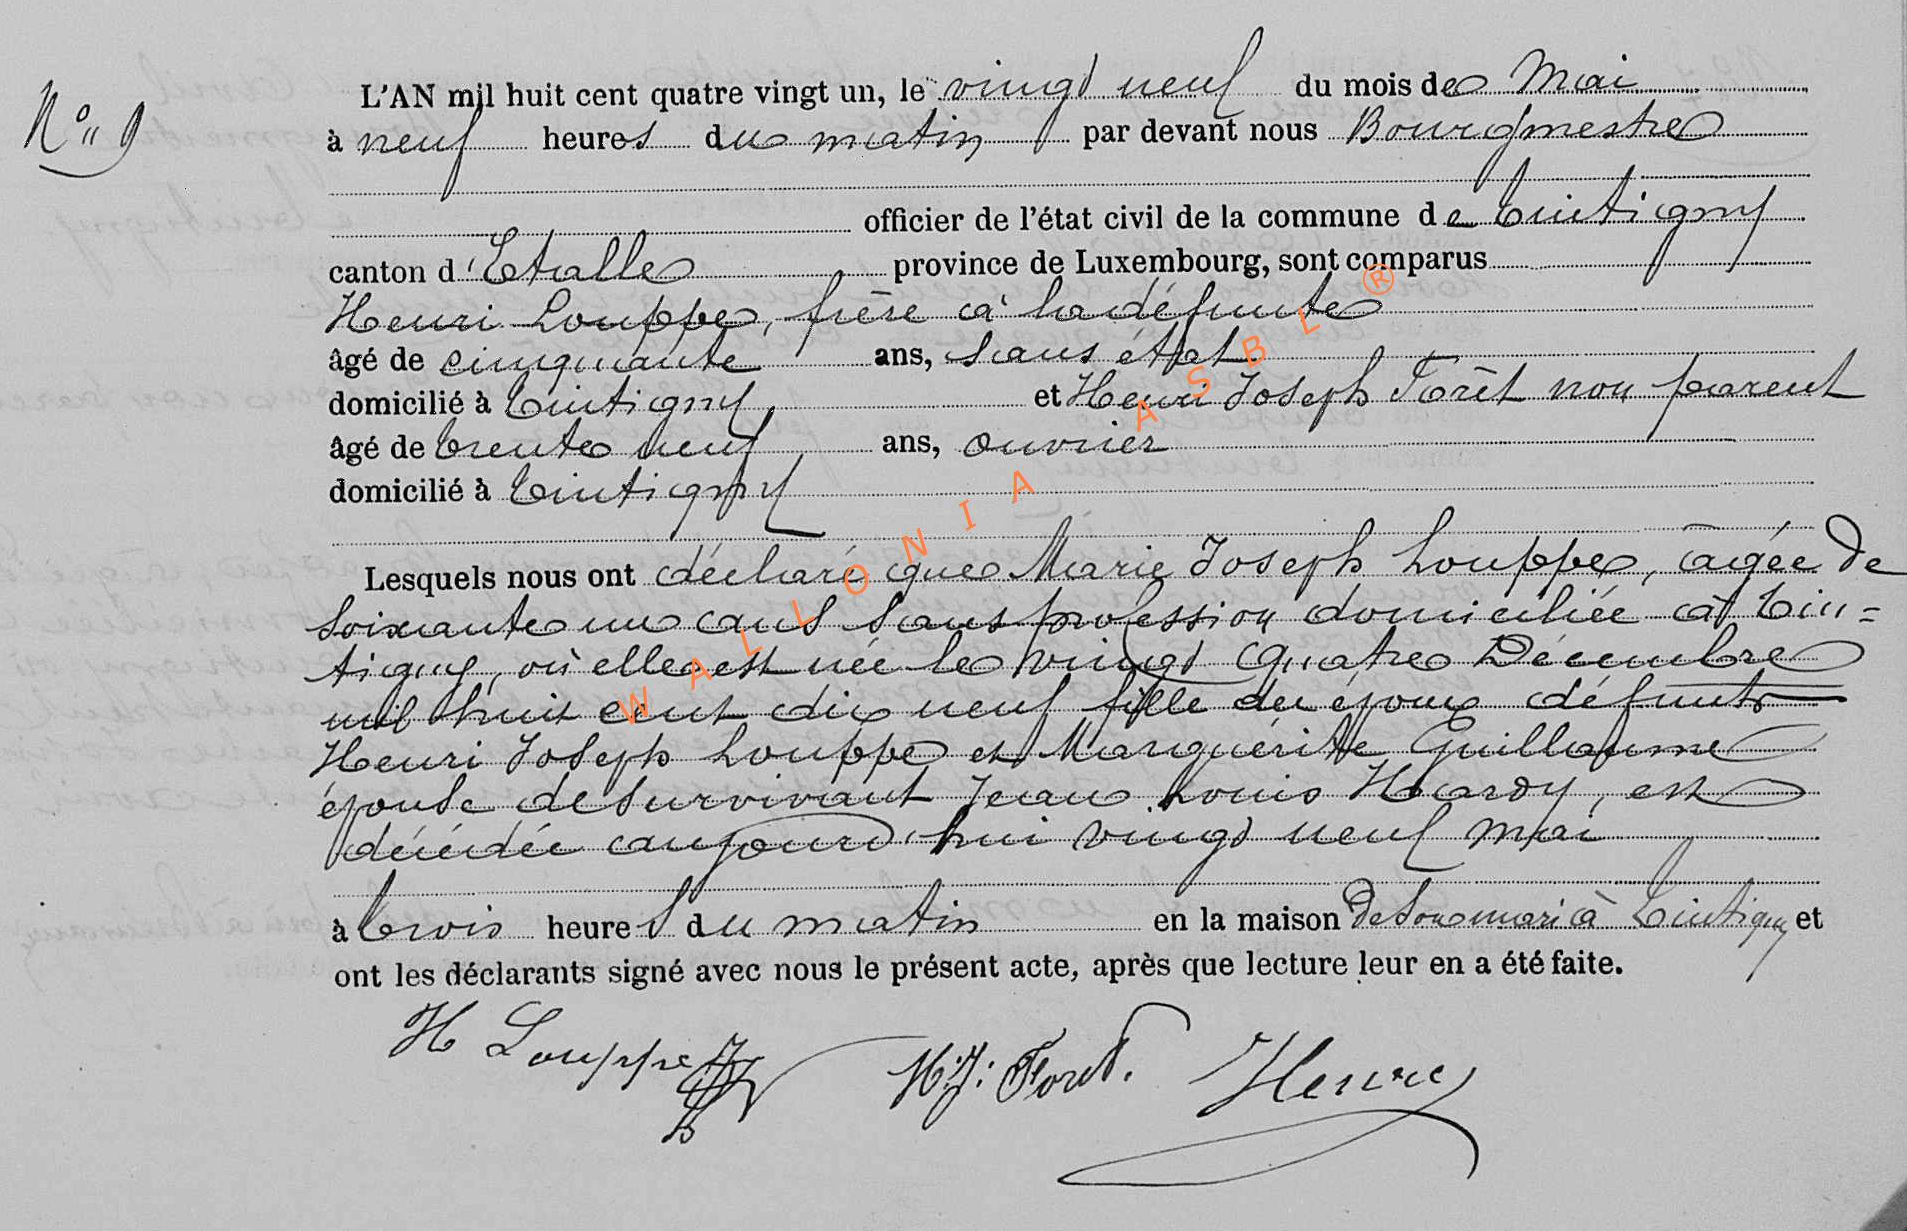 N° 9
L'AN mil huit cent quatre vingt un, le vingt neuf du mois de Mai
à neuf heures du matin par devant nous Bourgmestre
officier de l'état civil de la commune de Tintigny
canton d'Etalle province de Luxembourg, sont comparus
Henri Louppe, frère à la défunte
âgé de cinquante ans, sans état
domicilié à Tintigny et Henri Joseph Forêt non parent
âgé de trente neuf ans, ouvrier
domicilié à Tintigny
Lesquels nous ont déclaré que Marie Joseph Louppe, âgée de
soixante un ans sans profession domiciliée à Tin=
tigny, où elle est née le vingt quatre Décembre
mil huit cent dix neuf fille des époux défunts
Henri Joseph Louppe et Marguérite Guillaume
épouse de survivant Jean Louis Hardy, est
décédée aujourd'hui vingt neuf Mai
à trois heures du matin en la maison de son mari à Tintigny et
ont les déclarants signé avec nous le présent acte, après que lecture leur en a été faite.
H Louppe H. J. Foret. Henry
WALLONIA ASBL ®